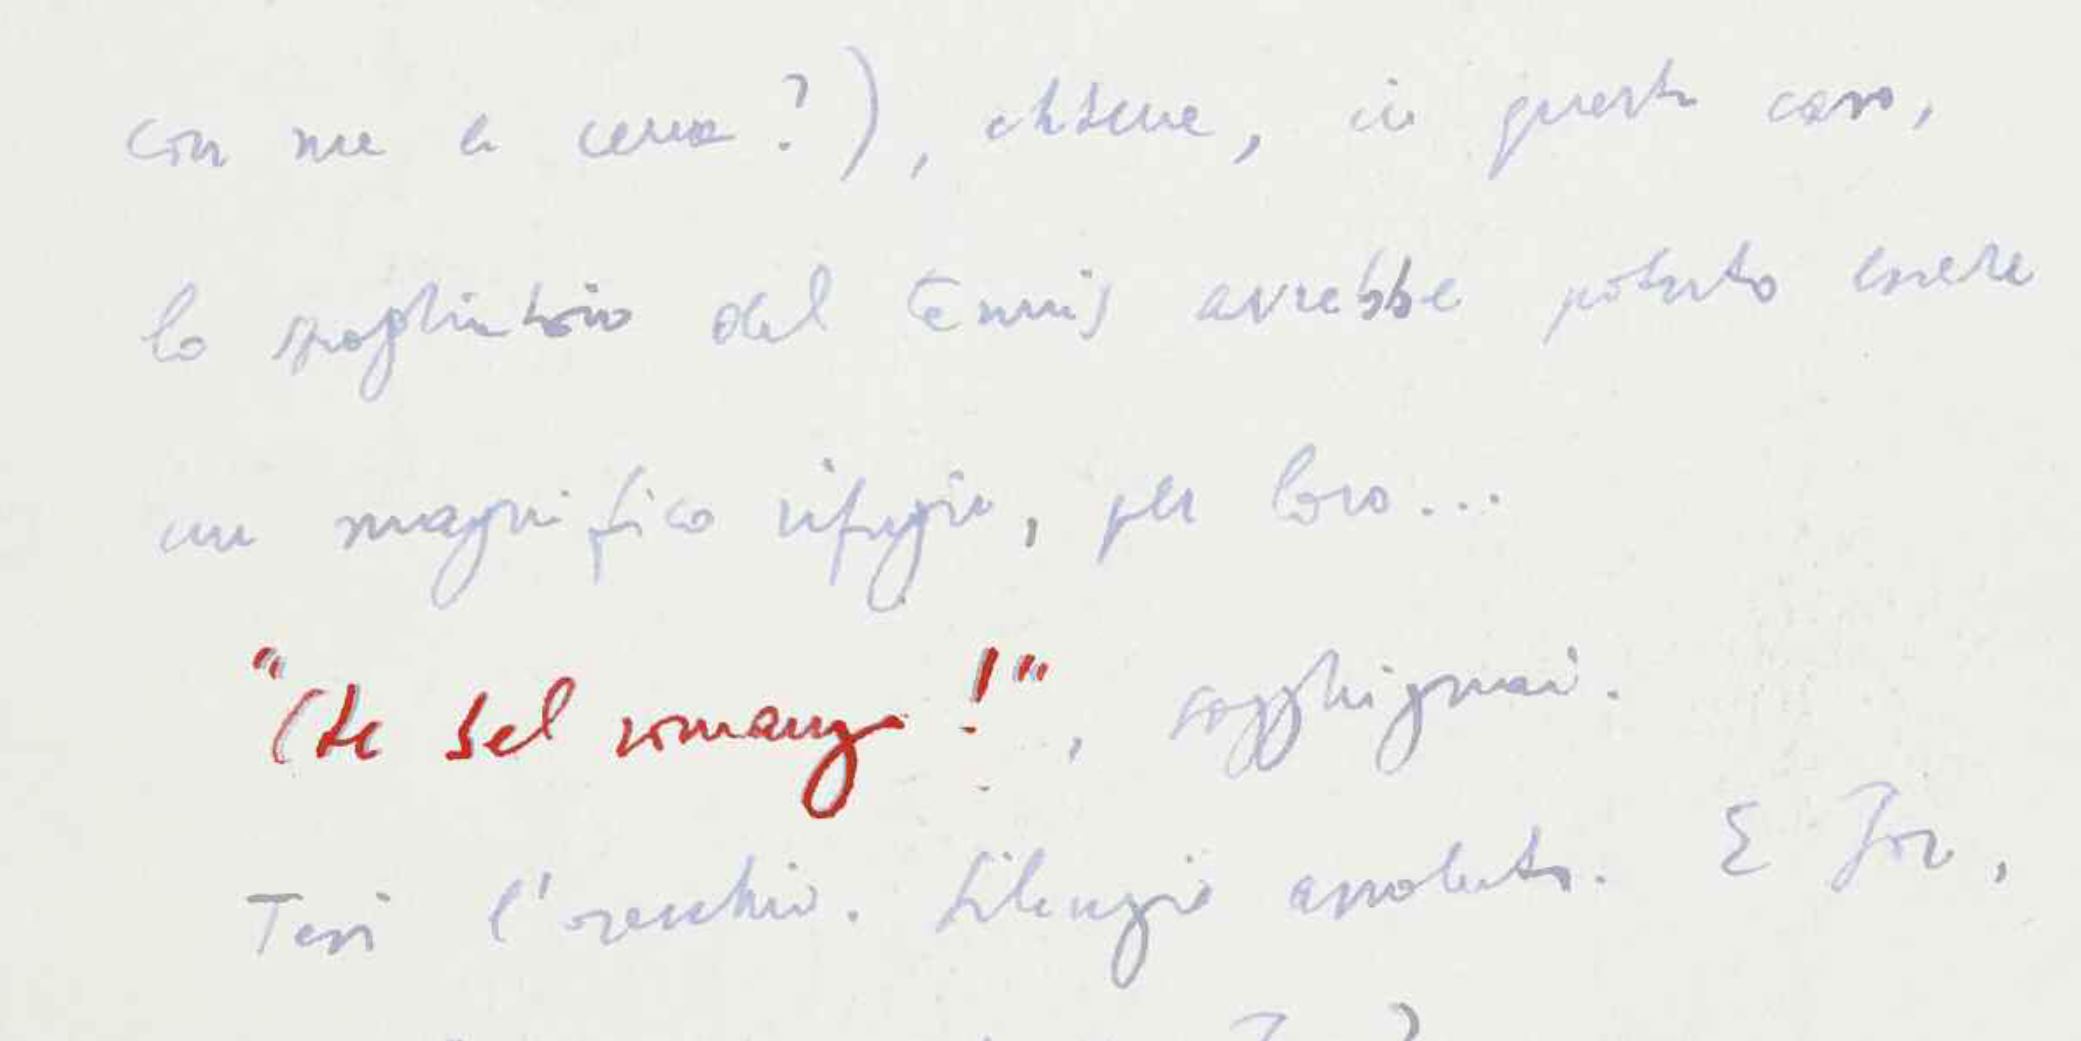 con me a cena?), ebbene, in questo caso,
lo spogliatoio del tennis avrebbe potuto essere
un magnifico rifugio, per loro...
"Che bel romanzo!", sogghignai.
Tesi l'orecchio. Silenzio assoluto. E Jor,